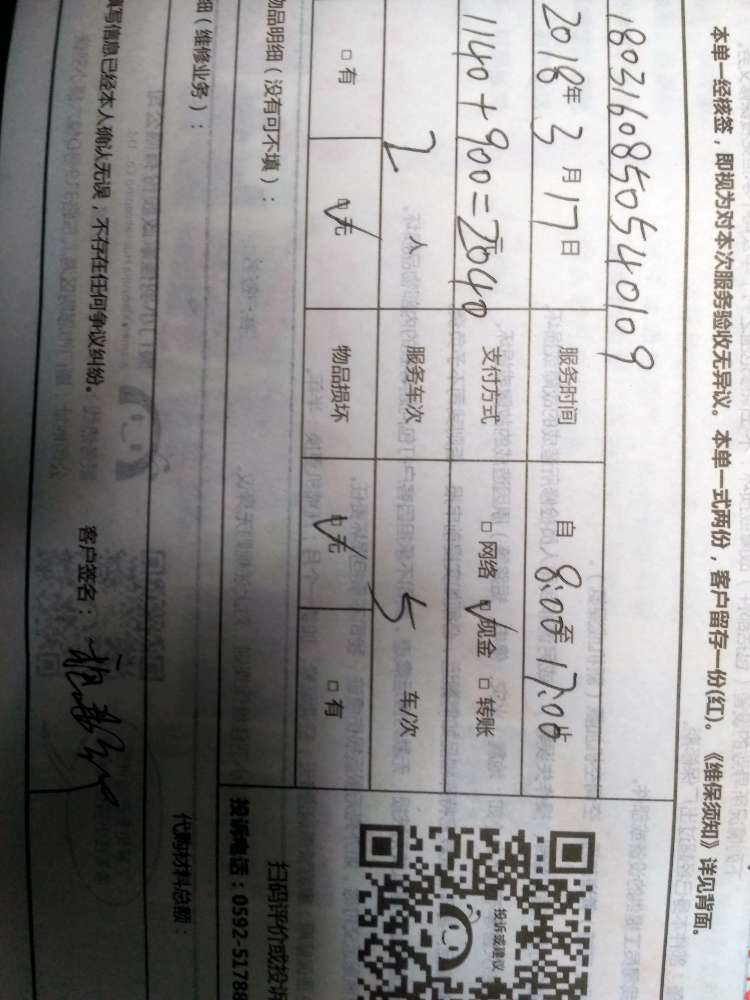 本单一经核签，即视为对本次服务验收无异议。本单一式两份，客户留存一份(红)。《维保须知》详见背面。
1803160850540109
2018年3月17日 服务时间 自8:00至17:00
1140+900=2040 支付方式 □网络 ☑现金 □转账
2人 服务车次 5车/次
□有 ☑无 物品损坏 ☑无 □有
物品明细（没有可不填）：
细（维修业务）：
填写信息已经本人确认无误，不存在任何争议纠纷。
客户签名：
代购材料总额：
投诉或建议
扫码评价或投诉
投诉电话：0592-51788